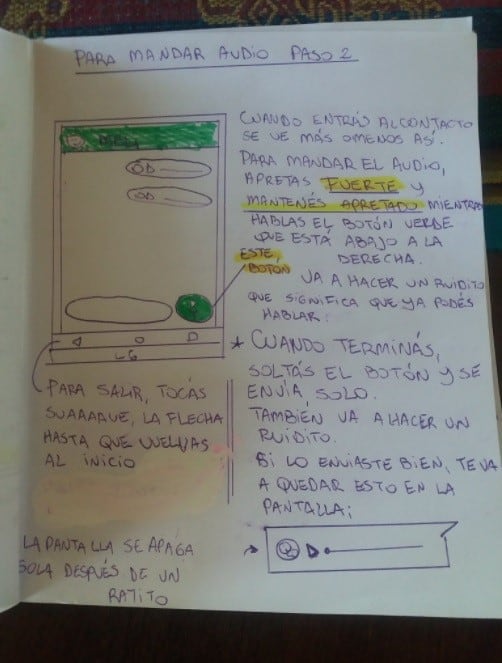 PARA MANDAR AUDIO PASO 2
CUANDO ENTRÁS AL CONTACTO
SE VE MÁS OMENOS ASÍ.
PARA MANDAR EL AUDIO,
APRETAS FUERTE Y
MANTENÉS APRETADO MIENTRAS
HABLAS EL BOTÓN VERDE
QUE ESTÁ ABAJO A LA
DERECHA.
ESTE
BOTÓN
VA A HACER UN RUIDITO
QUE SIGNIFICA QUE YA PODÉS
HABLAR.
LG
* CUANDO TERMINÁS,
SOLTÁS EL BOTÓN Y SE
ENVÍA, SOLO.
TAMBIÉN VA A HACER UN
RUIDITO.
SI LO ENVIASTE BIEN, TE VA
A QUEDAR ESTO EN LA
PANTALLA:
PARA SALIR, TOCÁS
SUAAAAVE, LA FLECHA
HASTA QUE VUELVAS
AL INICIO
LA PANTALLA SE APAGA
SOLA DESPUÉS DE UN
RATITO